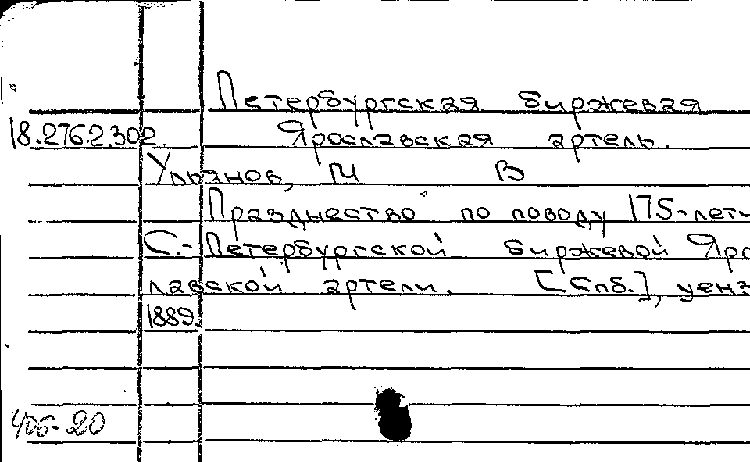 Петербургская биржевая
18.276.2.302 Ярославская артель.
Ульянов, М В
Празднество по поводу 175-лети
С.-Петербургской биржевой Яро
лавской артели. [Спб.], ценз
1889.
406-20